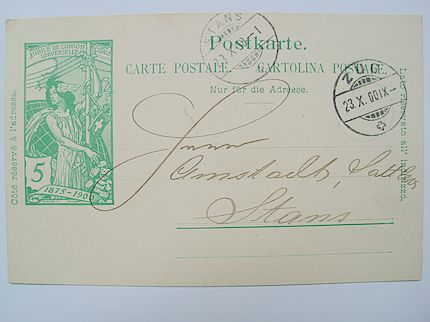 JUBILÉ DE L'UNION
UNIVERSELLE
5
1875-1900
Postkarte.
CARTE POSTALE. CARTOLINA POSTALE.
Nur für die Adresse.
Côté réservé à l'adresse.
Lato riservato all' indirizzo.
STANS
ZUG
23.X.00 IX
Herrn
Amstadt,
Stans